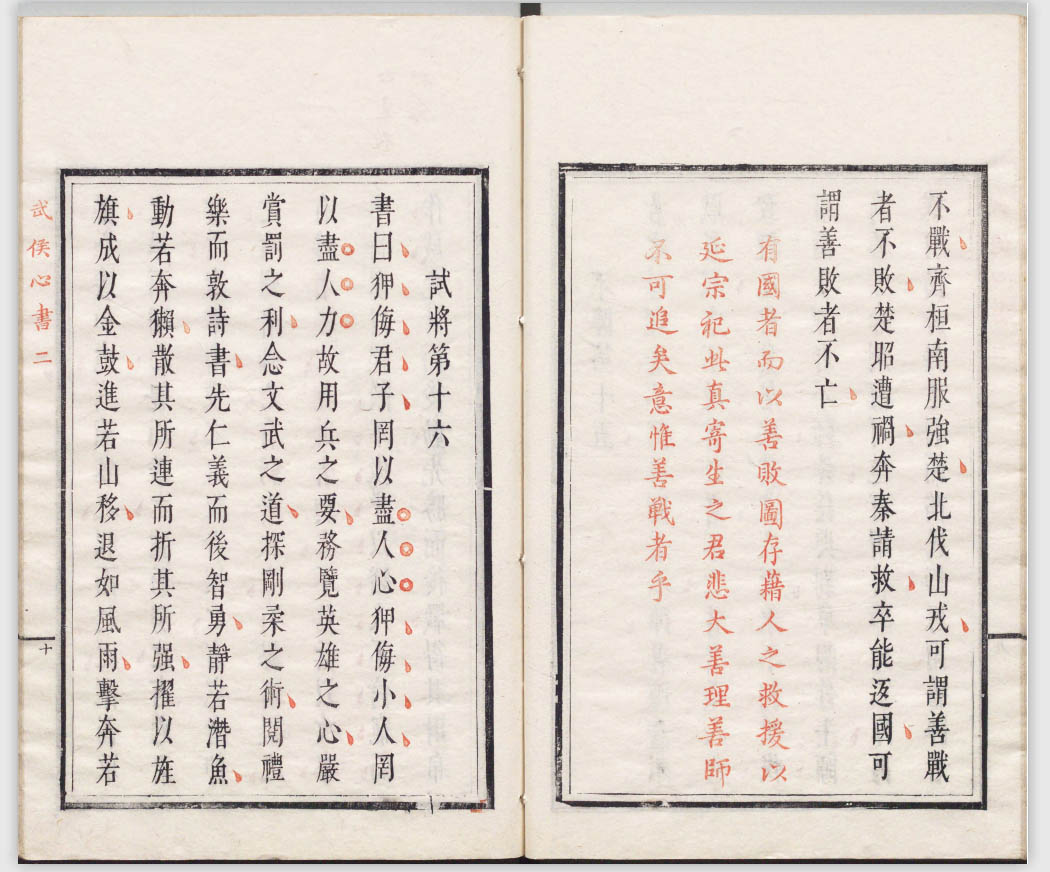 不戰齊桓南服強楚北伐山戎可謂善戰
者不敗楚昭遭禍奔秦請救卒能返國可
謂善敗者不亡
有國者而以善敗圖存藉人之救援以
延宗祀此真寄生之君悲大善理善師
不可追矣意惟善戰者乎
試將第十六
書曰狎侮君子罔以盡人心狎侮小人罔
以盡人力故用兵之要務覽英雄之心嚴
賞罰之利念文武之道探剛柔之術閱禮
樂而敦詩書先仁義而後智勇靜若潛魚
動若奔獺散其所連而折其所强擢以旌
旗成以金鼓進若山移退如風雨擊奔若
武侯心書二
十